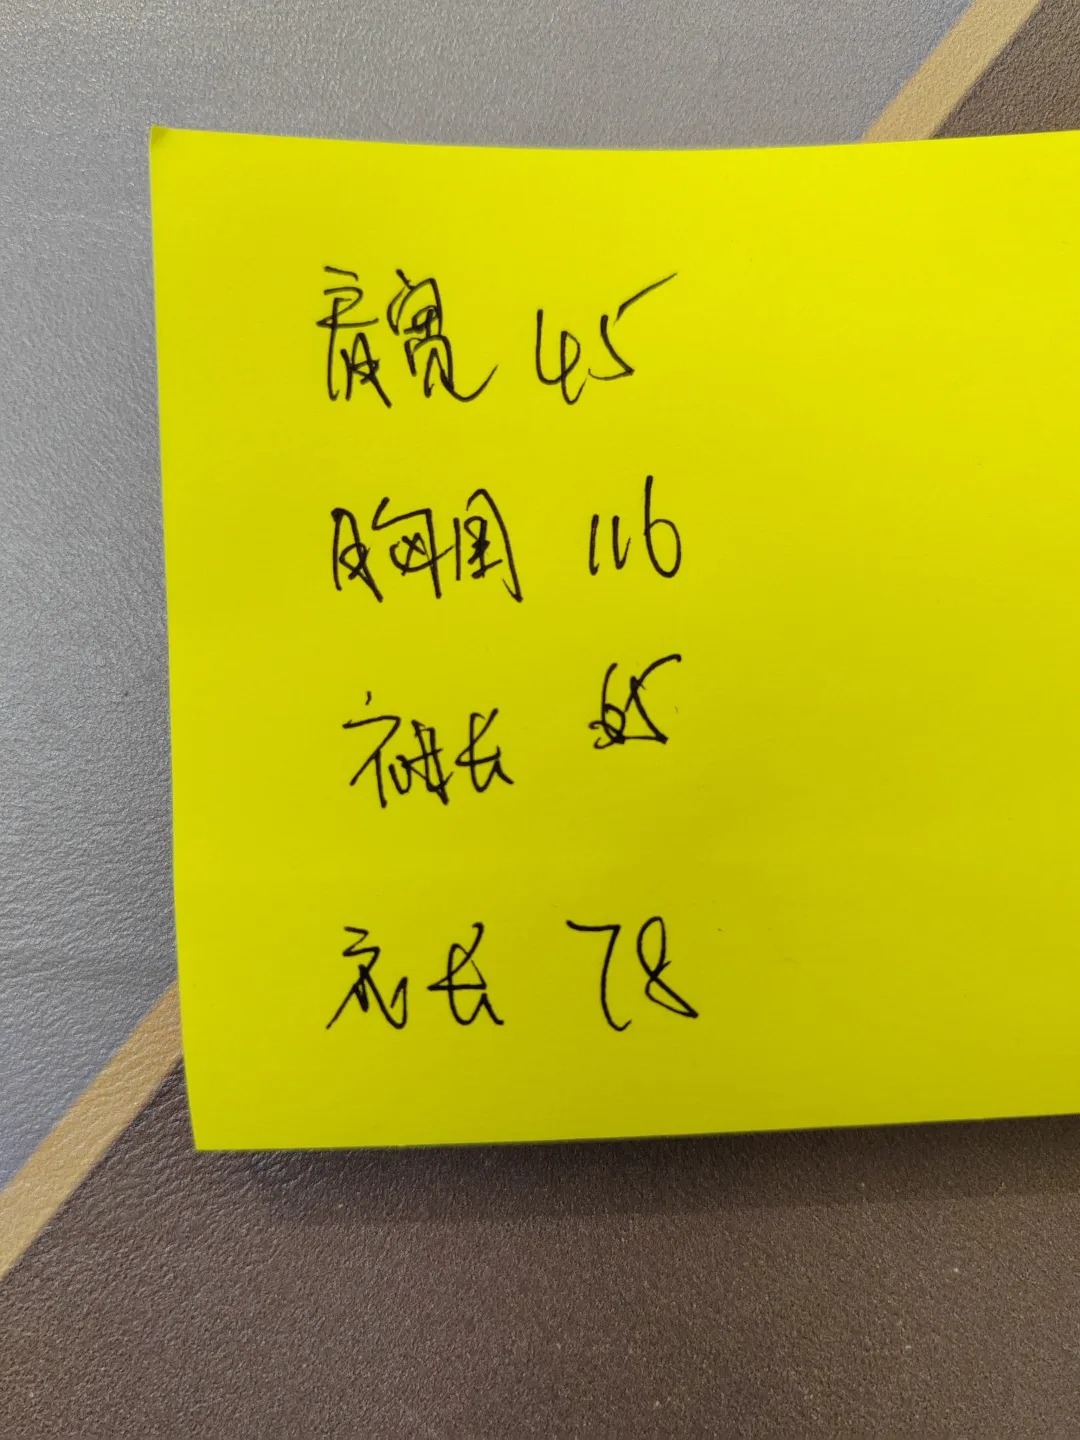 肩宽 45
胸围 116
袖长 65
衣长 78